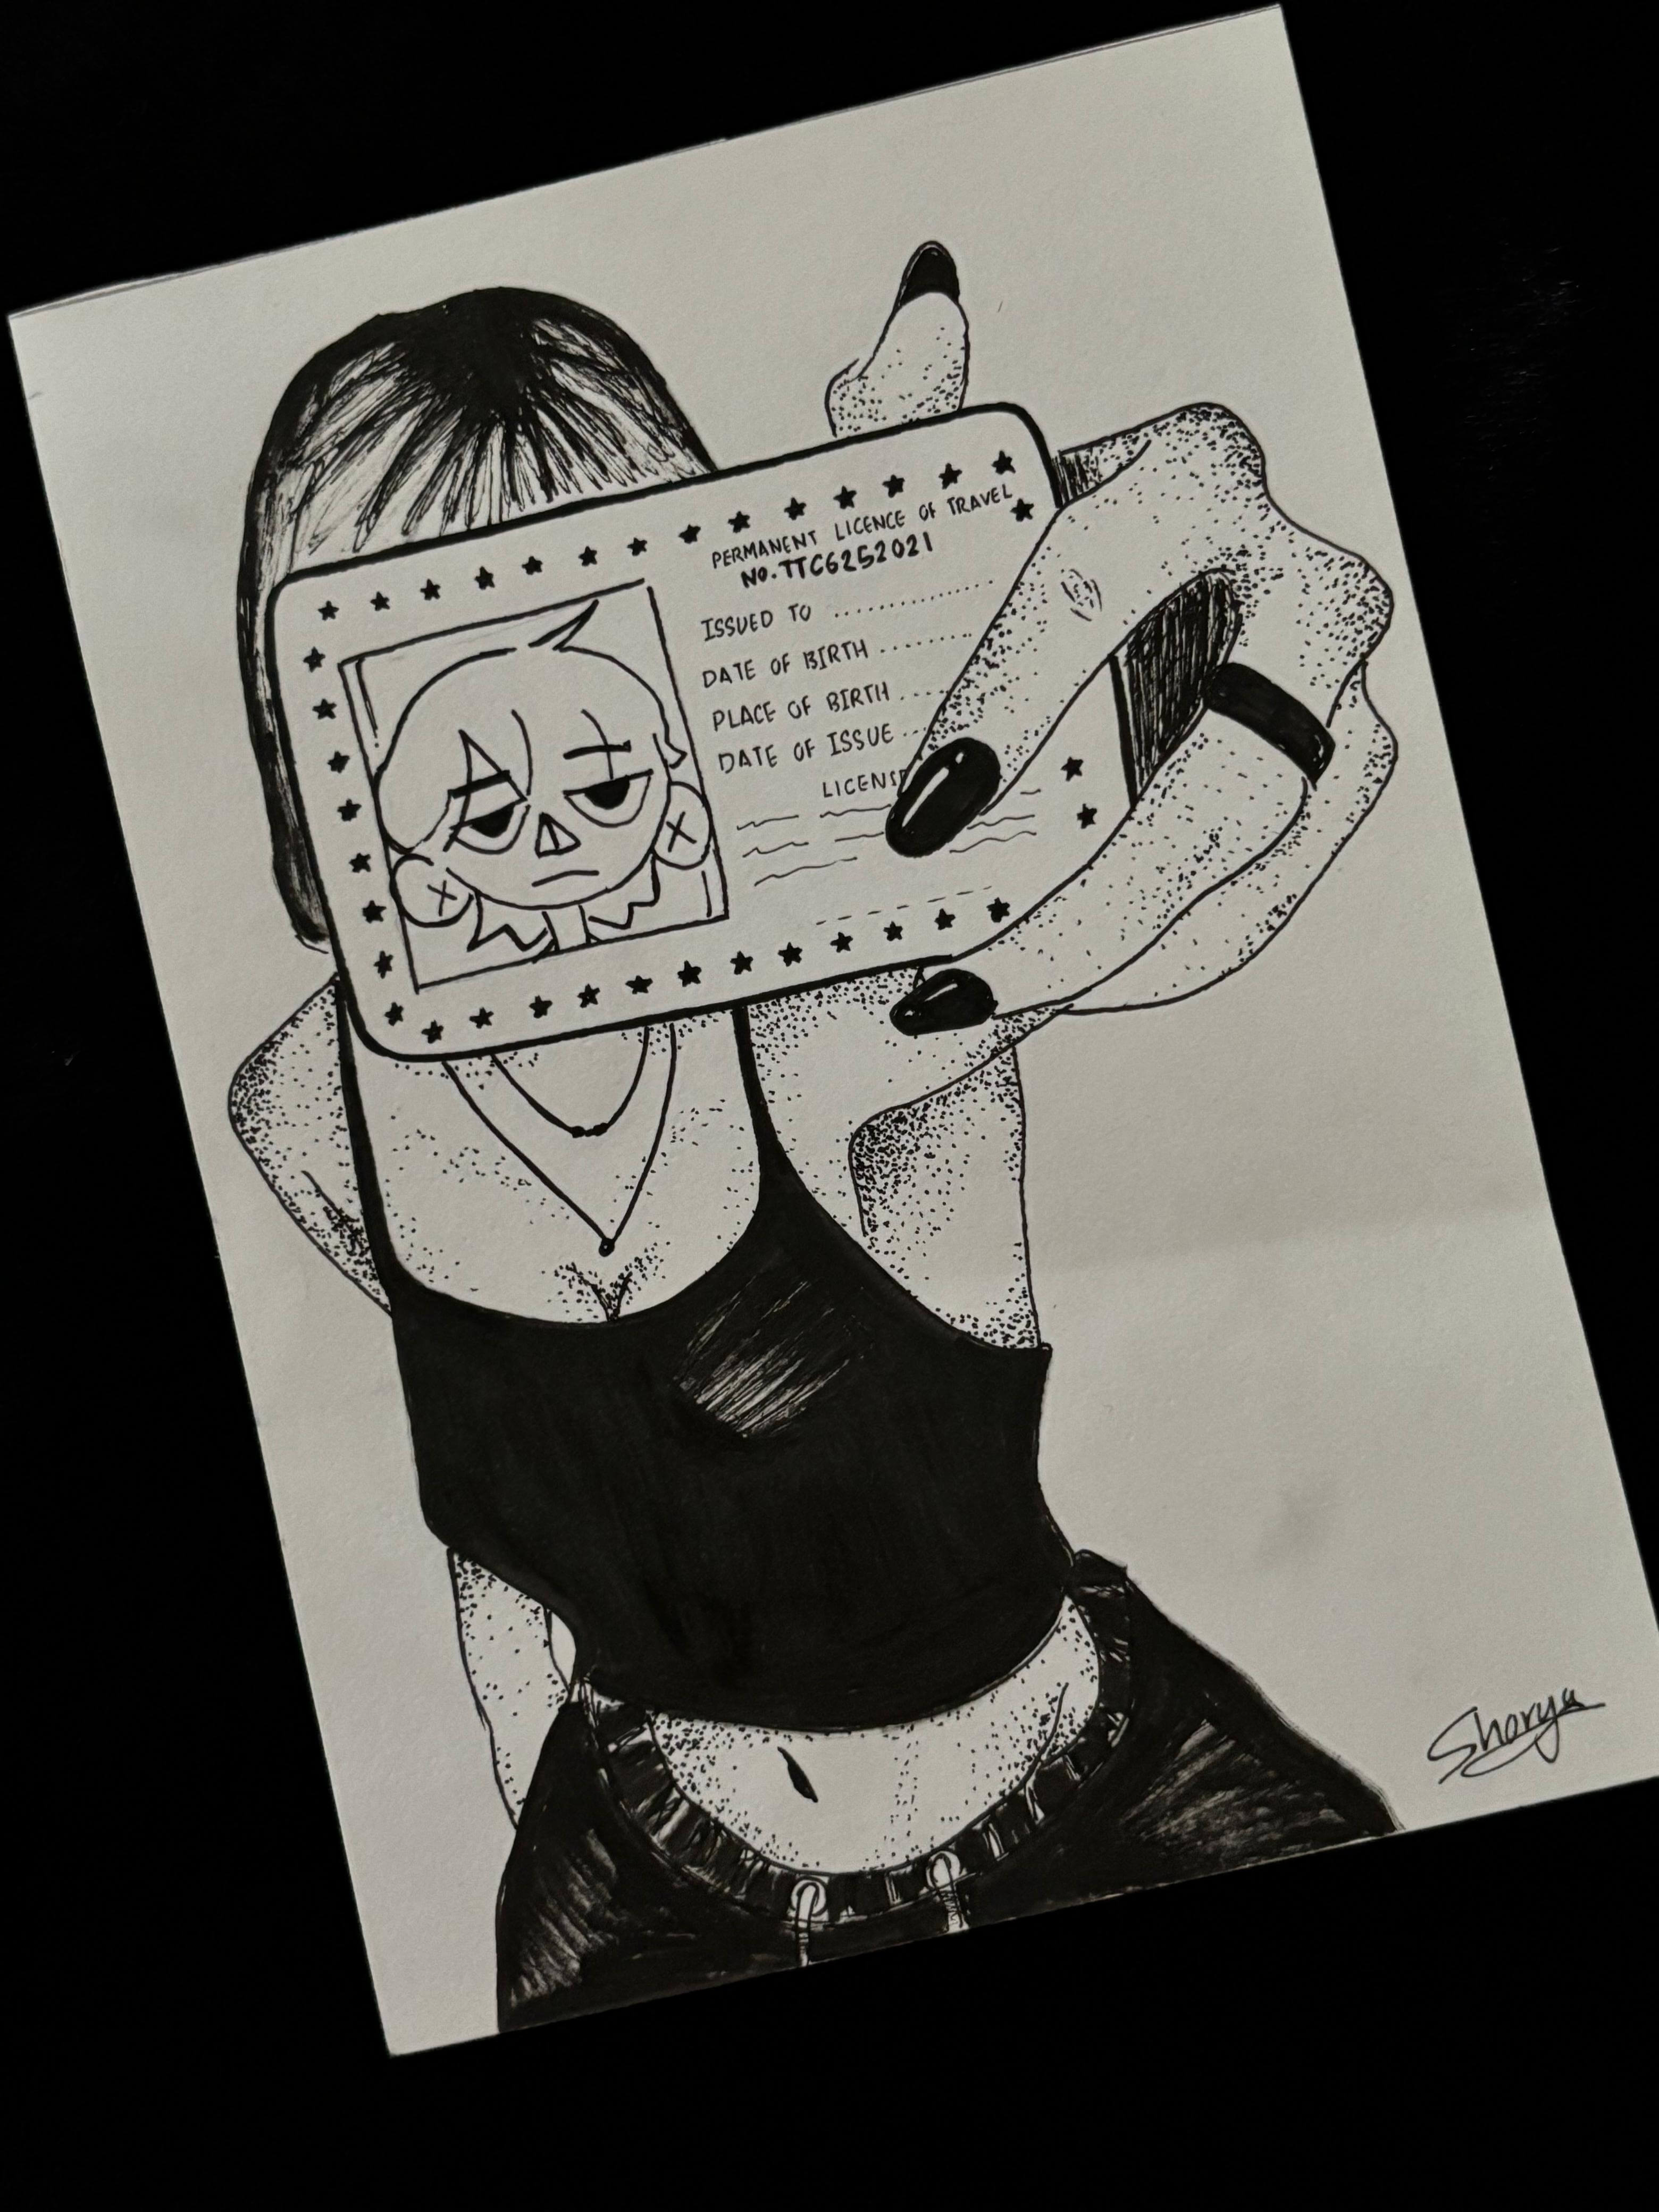 PERMANENT LICENCE OF TRAVEL
NO. TTC6252021
ISSUED TO ..............
DATE OF BIRTH ........
PLACE OF BIRTH .....
DATE OF ISSUE ..
LICENSE
Shorya